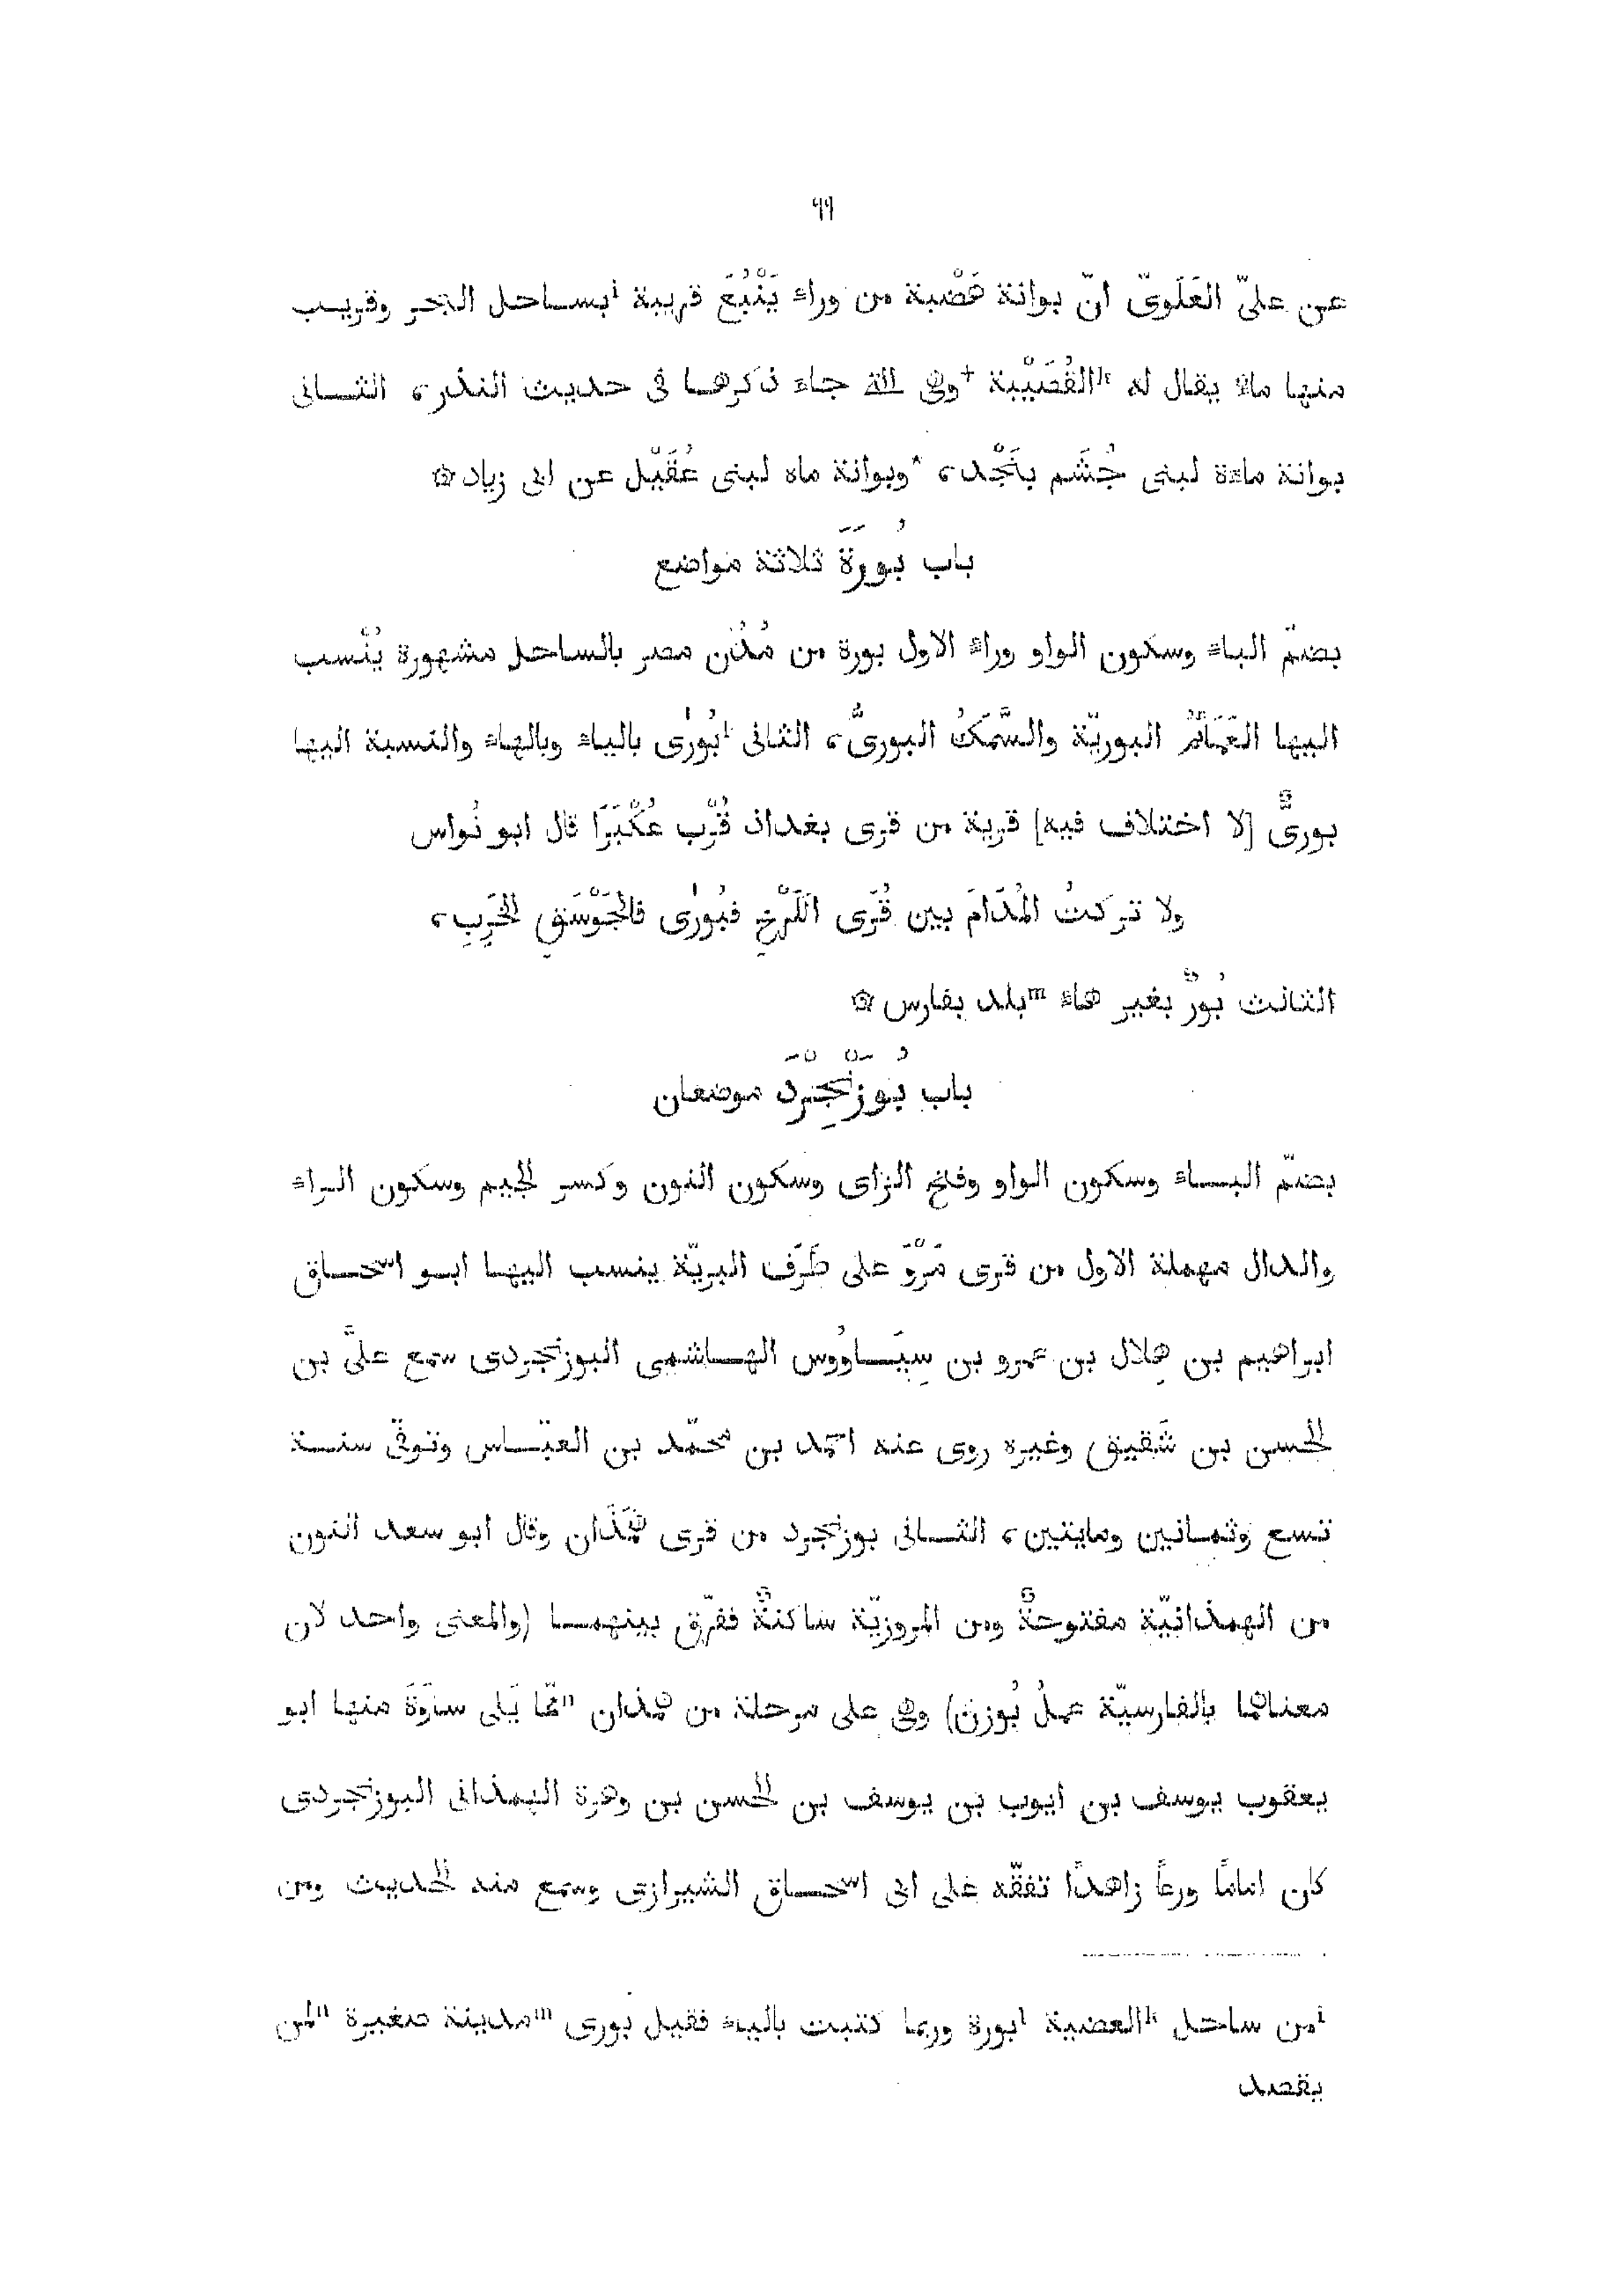 ٦٩
عن علىّ العَلَوىّ انّ بوانة هَضْبة من وراء يَنْبُعَ قريبة ⁱبساحل البحر وقريب
منها ماءٌ يقال له ᵏالقُصَيْبِية +وهى التى جاء ذكرها فى حديث النذر، الثانى
بوانة ماءة لبنى جُشَم بنَجْد، *وبوانة ماء لبنى عُقَيْل عن ابى زياد ۞
باب بُورَةَ ثلاثة مواضع
بضمّ الباء وسكون الواو وراء الاول بورة من مُدُن مصر بالساحل مشهورة يُنْسب
اليها العَمَائمُ البوريّة والسَّمَكُ البورىُّ، الثانى ˡبُورٰى بالياء وبالهاء والنسبة اليها
بورىٌّ [لا اختلاف فيه] قرية من قرى بغداد قُرْب عُكْبَرَا قال ابو نُواس
ولا تركتُ المُدَامَ بين قُرَى الكَرْخِ فبُورٰى فالجَوْسَقِ الخَرِبِ،
الثالث بُورٌ بغير هاء ᵐبلد بفارس ۞
باب بُوزَنْجِرْدَ موضعان
بضمّ الباء وسكون الواو وفتح الزاى وسكون النون وكسر الجيم وسكون الراء
والدال مهملة الاول من قرى مَرْوَ على طَرَف البريّة ينسب اليها ابو اسحاق
ابراهيم بن هِلال بن عمرو بن سِيَاوُوس الهاشمى البوزنجردى سمع علىَّ بن
الحسن بن شَقيق وغيره روى عنه احمد بن محمّد بن العبّاس وتوفّى سنة
تسع وثمانين ومايتين، الثانى بوزنجرد من قرى هَمَذَان وقال ابو سعد النون
من الهمذانيّة مفتوحةٌ ومن المروزيّة ساكنةٌ ففرّق بينهما (والمعنى واحد لان
معناهما بالفارسيّة عملُ بُوزن) وهى على مرحلة من همذان ⁿممّا يَلى ساوَةَ منها ابو
يعقوب يوسف بن ايوب بن يوسف بن الحسن بن وهرة الهمذانى البوزنجردى
كان امامًا ورعًا زاهدًا تفقّه على ابى اسحاق الشيرازى وسمع منه الحديث ومن
ⁱمن ساحل ᵏالعضبية ˡبورة وربما كتبت بالياء فقيل بورى ᵐمدينة صغيرة ⁿلمن
يقصد